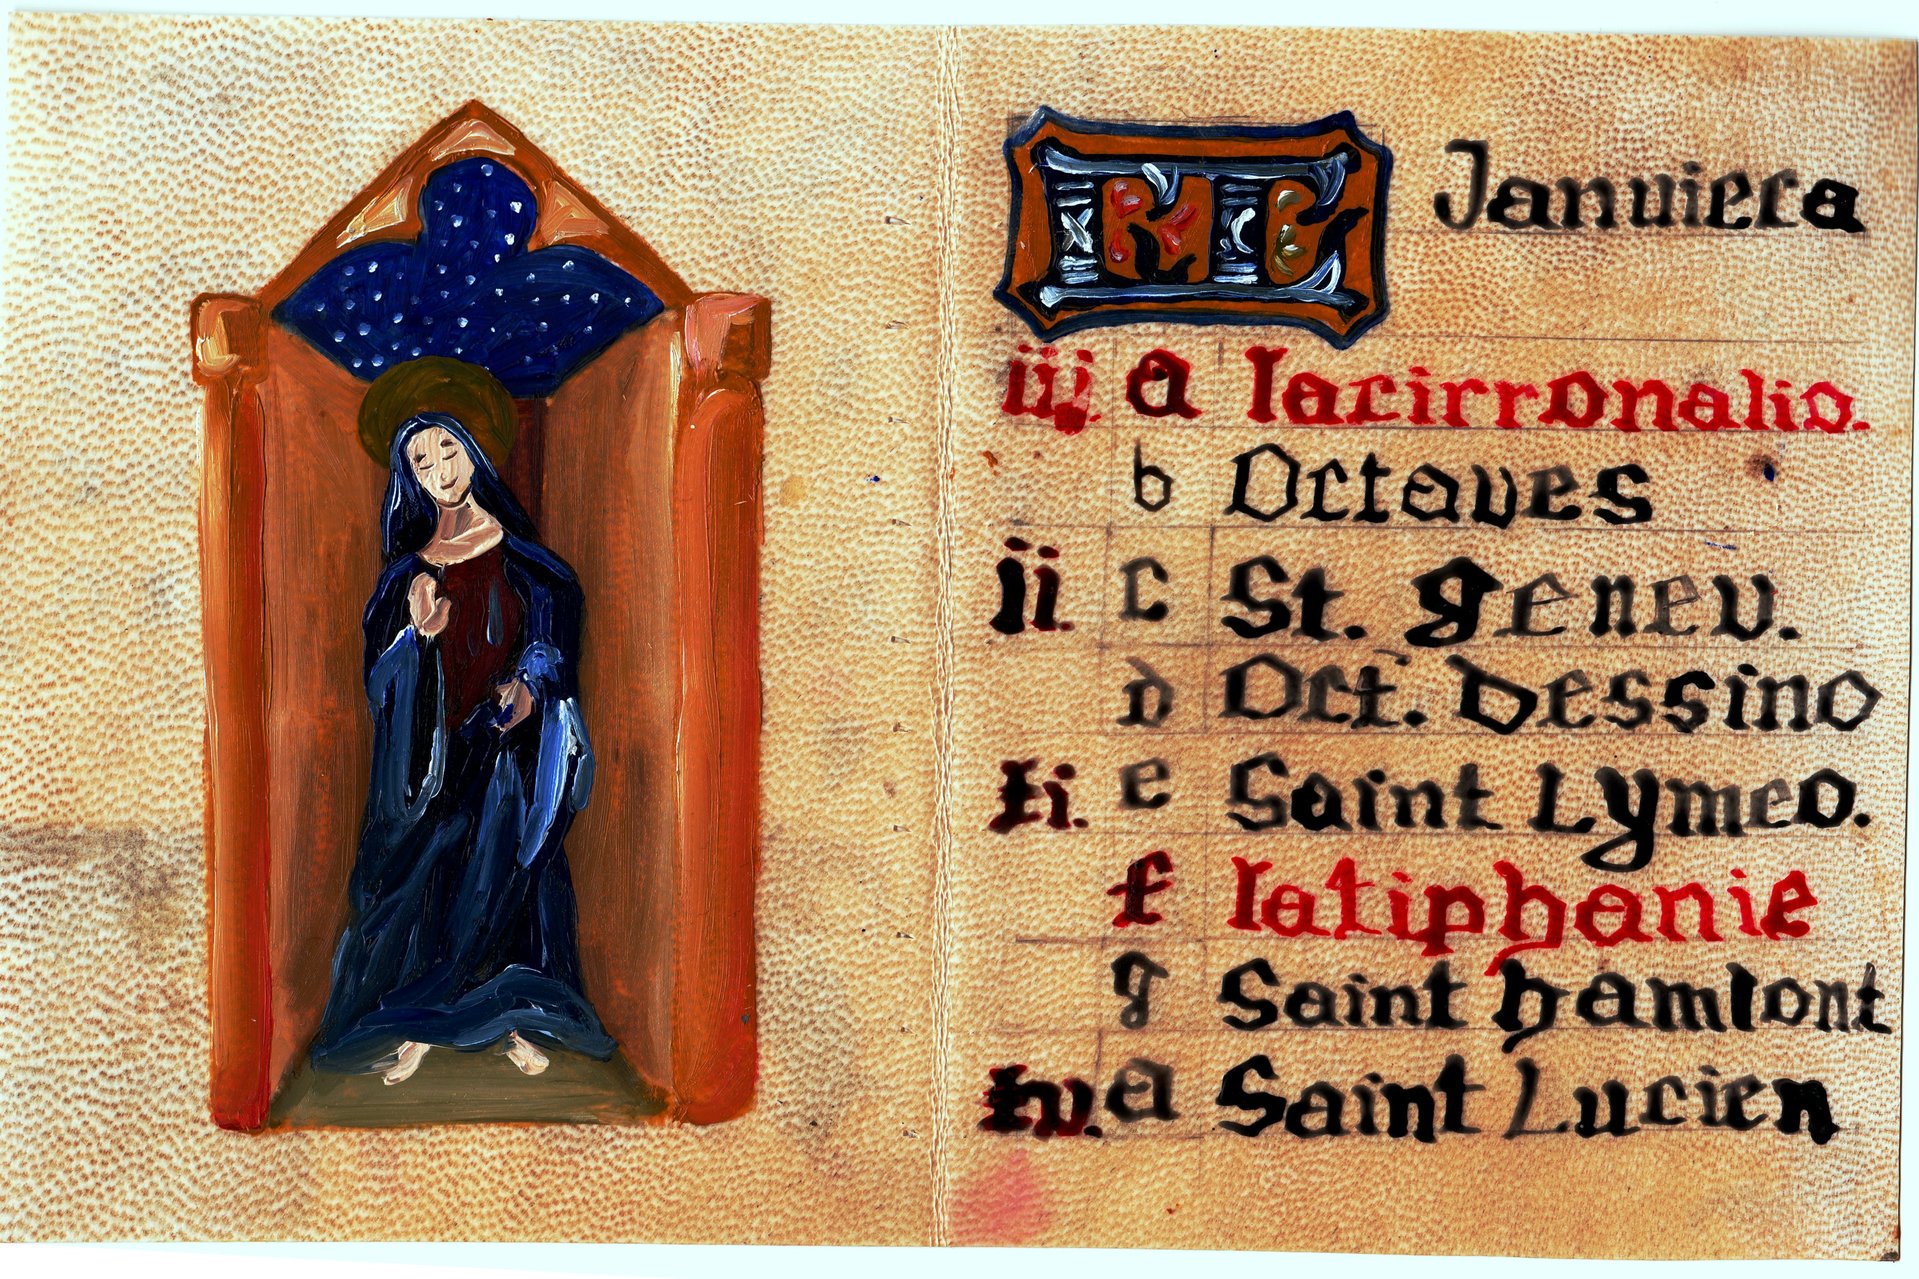 KL Januiera
iij. a Iacirronalio.
b Octaves
ii. c St. genev.
d Oct. Dessino
xi. e Saint Lymeo.
f Iatiphanie
g Saint hamlont
xv. a Saint Lucien